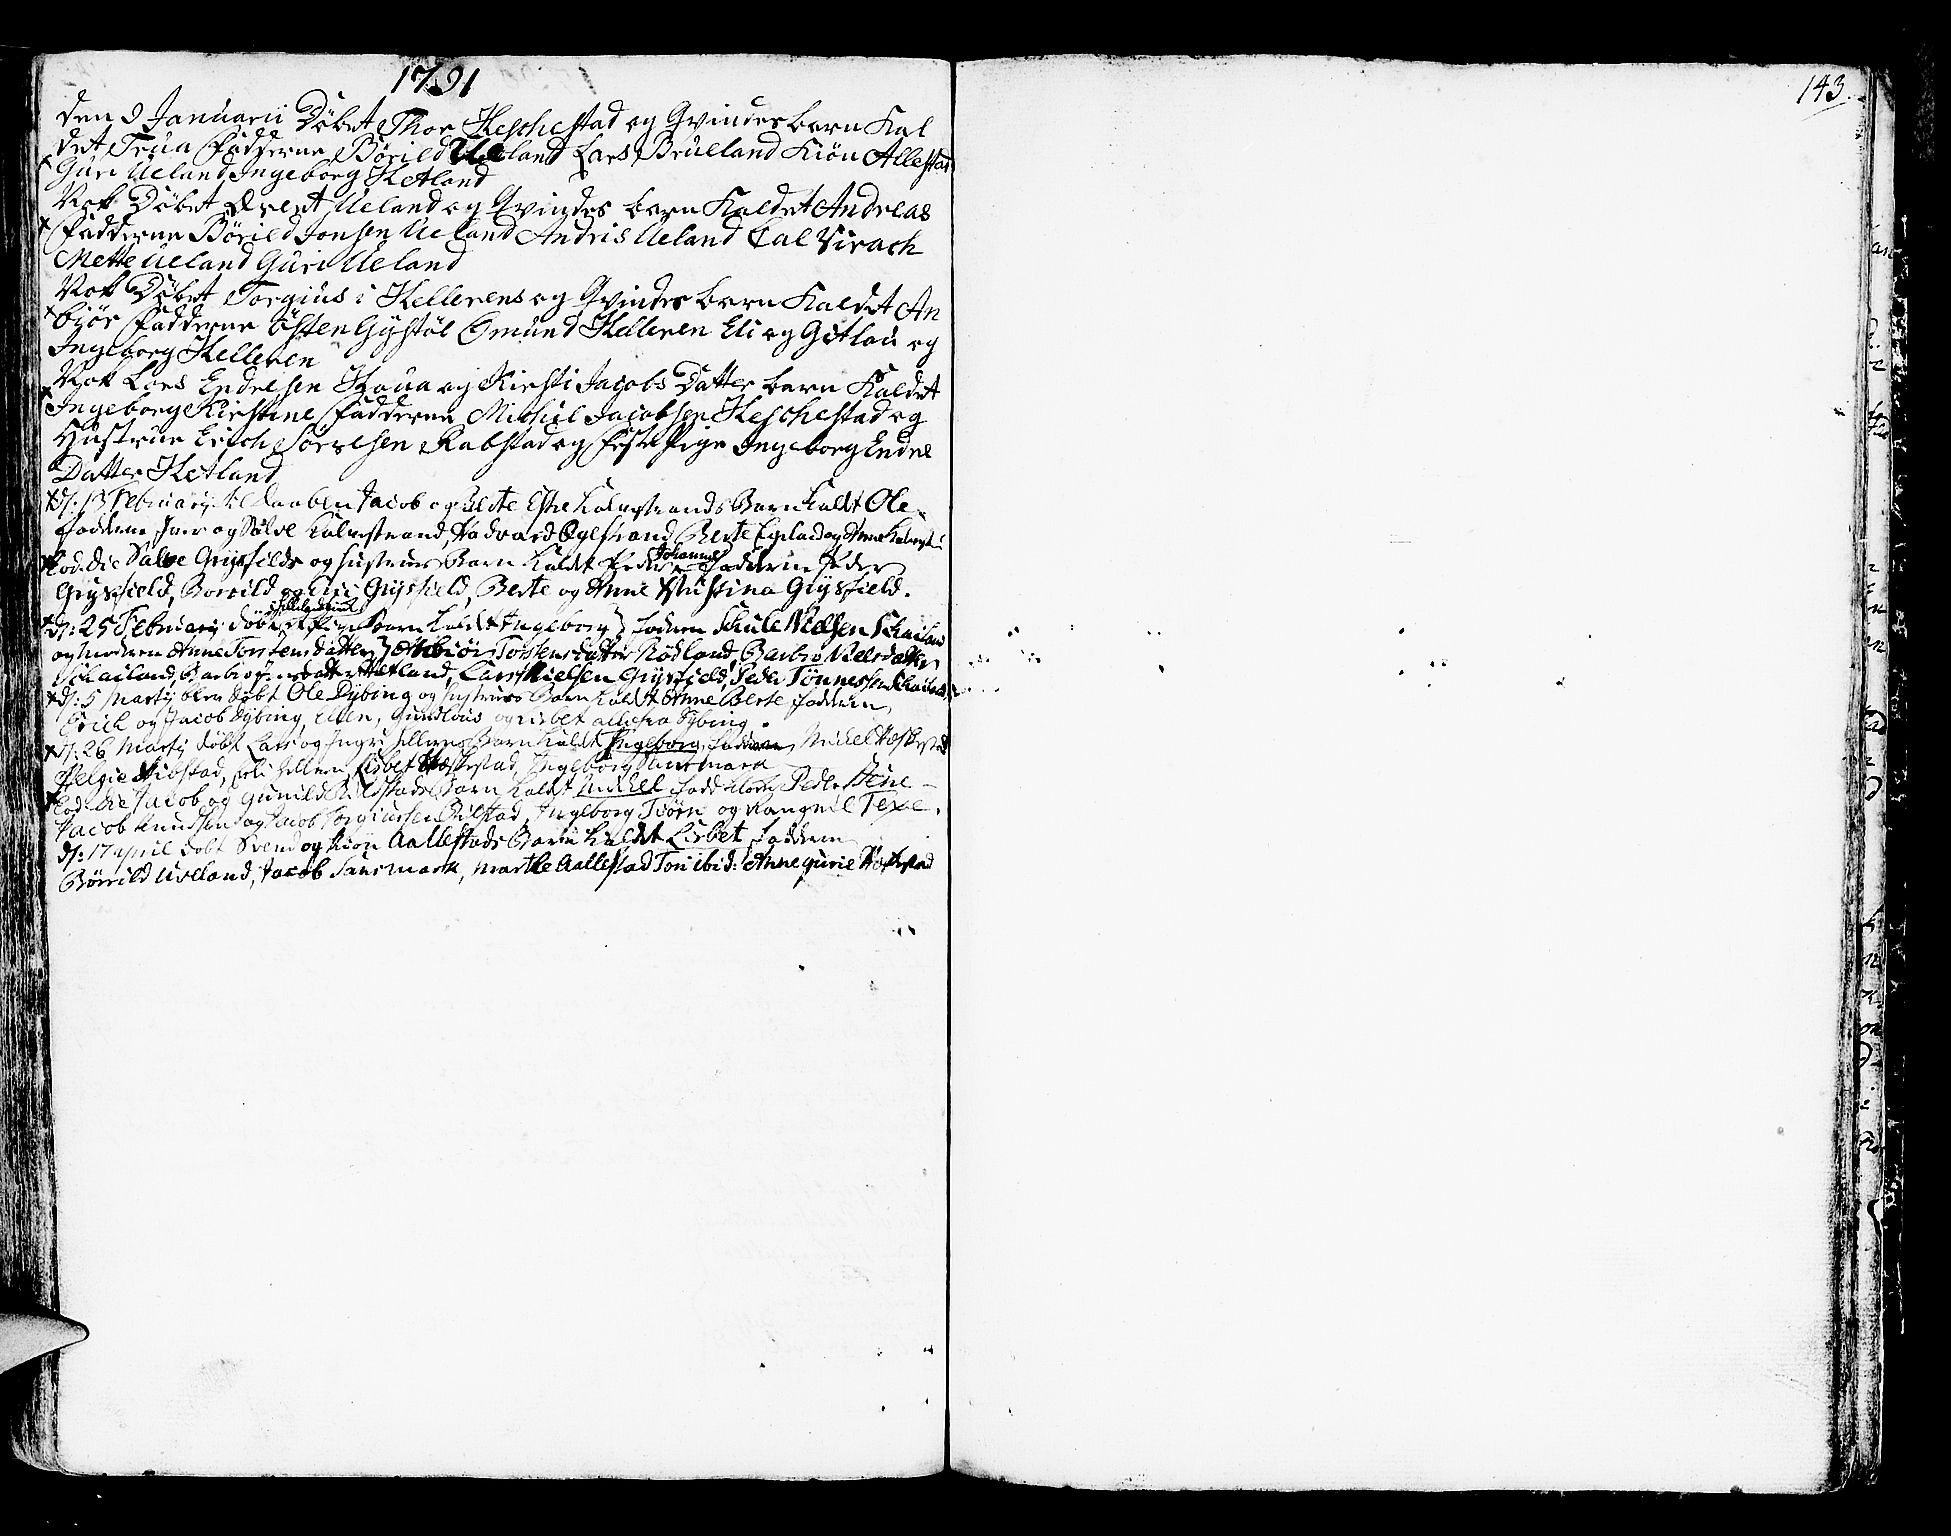 1791
143
den 9 Januarii Döbet Thor Heschestad og Qvindes barn Kal
det Trua Fadderne Börild Ueland Lars Brueland Kiön Allestad
Guri Ueland Ingeborg Hetland
Nok Döbet Drent Ueland og Qvindes barn Kaldet Andreas
Fadderne Börild Jonsen Ueland Andris Ueland Cal Virach
Mette Ueland Guri Ueland
Nok Döbet Torgius i Hellerens og Qvindes barn Kaldet An
biör Fadderne Östen Gystöl Omund Helleren Eli og Gitlau og
Ingeborg Helleren
Nok Lars Endresen Houa og Kirsti Jacobs Datter barn Kaldet
Ingeborg Kirstine Fadderne Michiel Jacobsen Heschestad og
Hustrue Erich Sörresen Rabstad og Feste Pige Ingeborg Endre
Datter Hetland
d: 13 February til Daaben Jacob og Berte Eshe Kalvestrands Barn kaldt Ole
Faddere Iver og Sölve Kalvestrand, Hadvard Ogelstrand Berte Egeland og Anne
Eod. die Salve Grysfields og hustrues Barn kaldt Peder Johannes Faddere Peder
Grysfield, Borrild og Eli Grysfield, Berte og Anne Stina Grysfield.
d: 25 February döbt et Barn kaldt Ingeborg, Faderen Schule Nielsen Schailand
og moderen Anne Torstensdatter, Anbiör Torstensdatter Nödland, Barbro Nielsdatter
Schailand, Barbro datter Hetland, Lars Nielsen Grysfield, Peder Tönnessen Schailand
d: 5 Marty blev döbt Ole Dybing og hustrues Barn kaldt Anne Berte Faddere
Erich og Jacob Dybing, Ellen, Gundlous og Lisbet allesra Dybing.
d: 26 Marty döbt Lars og Ingri Hellrens Barn kaldt Ingeborg, Faddere Michel Heskestad
Helgie Bilstad, Eli Hellren, Lisbet Heskestad, Ingeborg Saursmark
Eod. die Jacob og Gunild Bilstads Barn kaldt Michel Fadd. Peder Hene
Jacob Knudsen og Jacob Torgiursen Bilstad, Ingeborg Tiörn og Rangnil Texe.
d: 17 april döbt Svend og Kiön Aallestads Barn kaldt Lisbet Faddere
Börrild Uveland, Jacob Saursmark, Marthe Aallestad Tori ibid: Anne gurie Heskestad